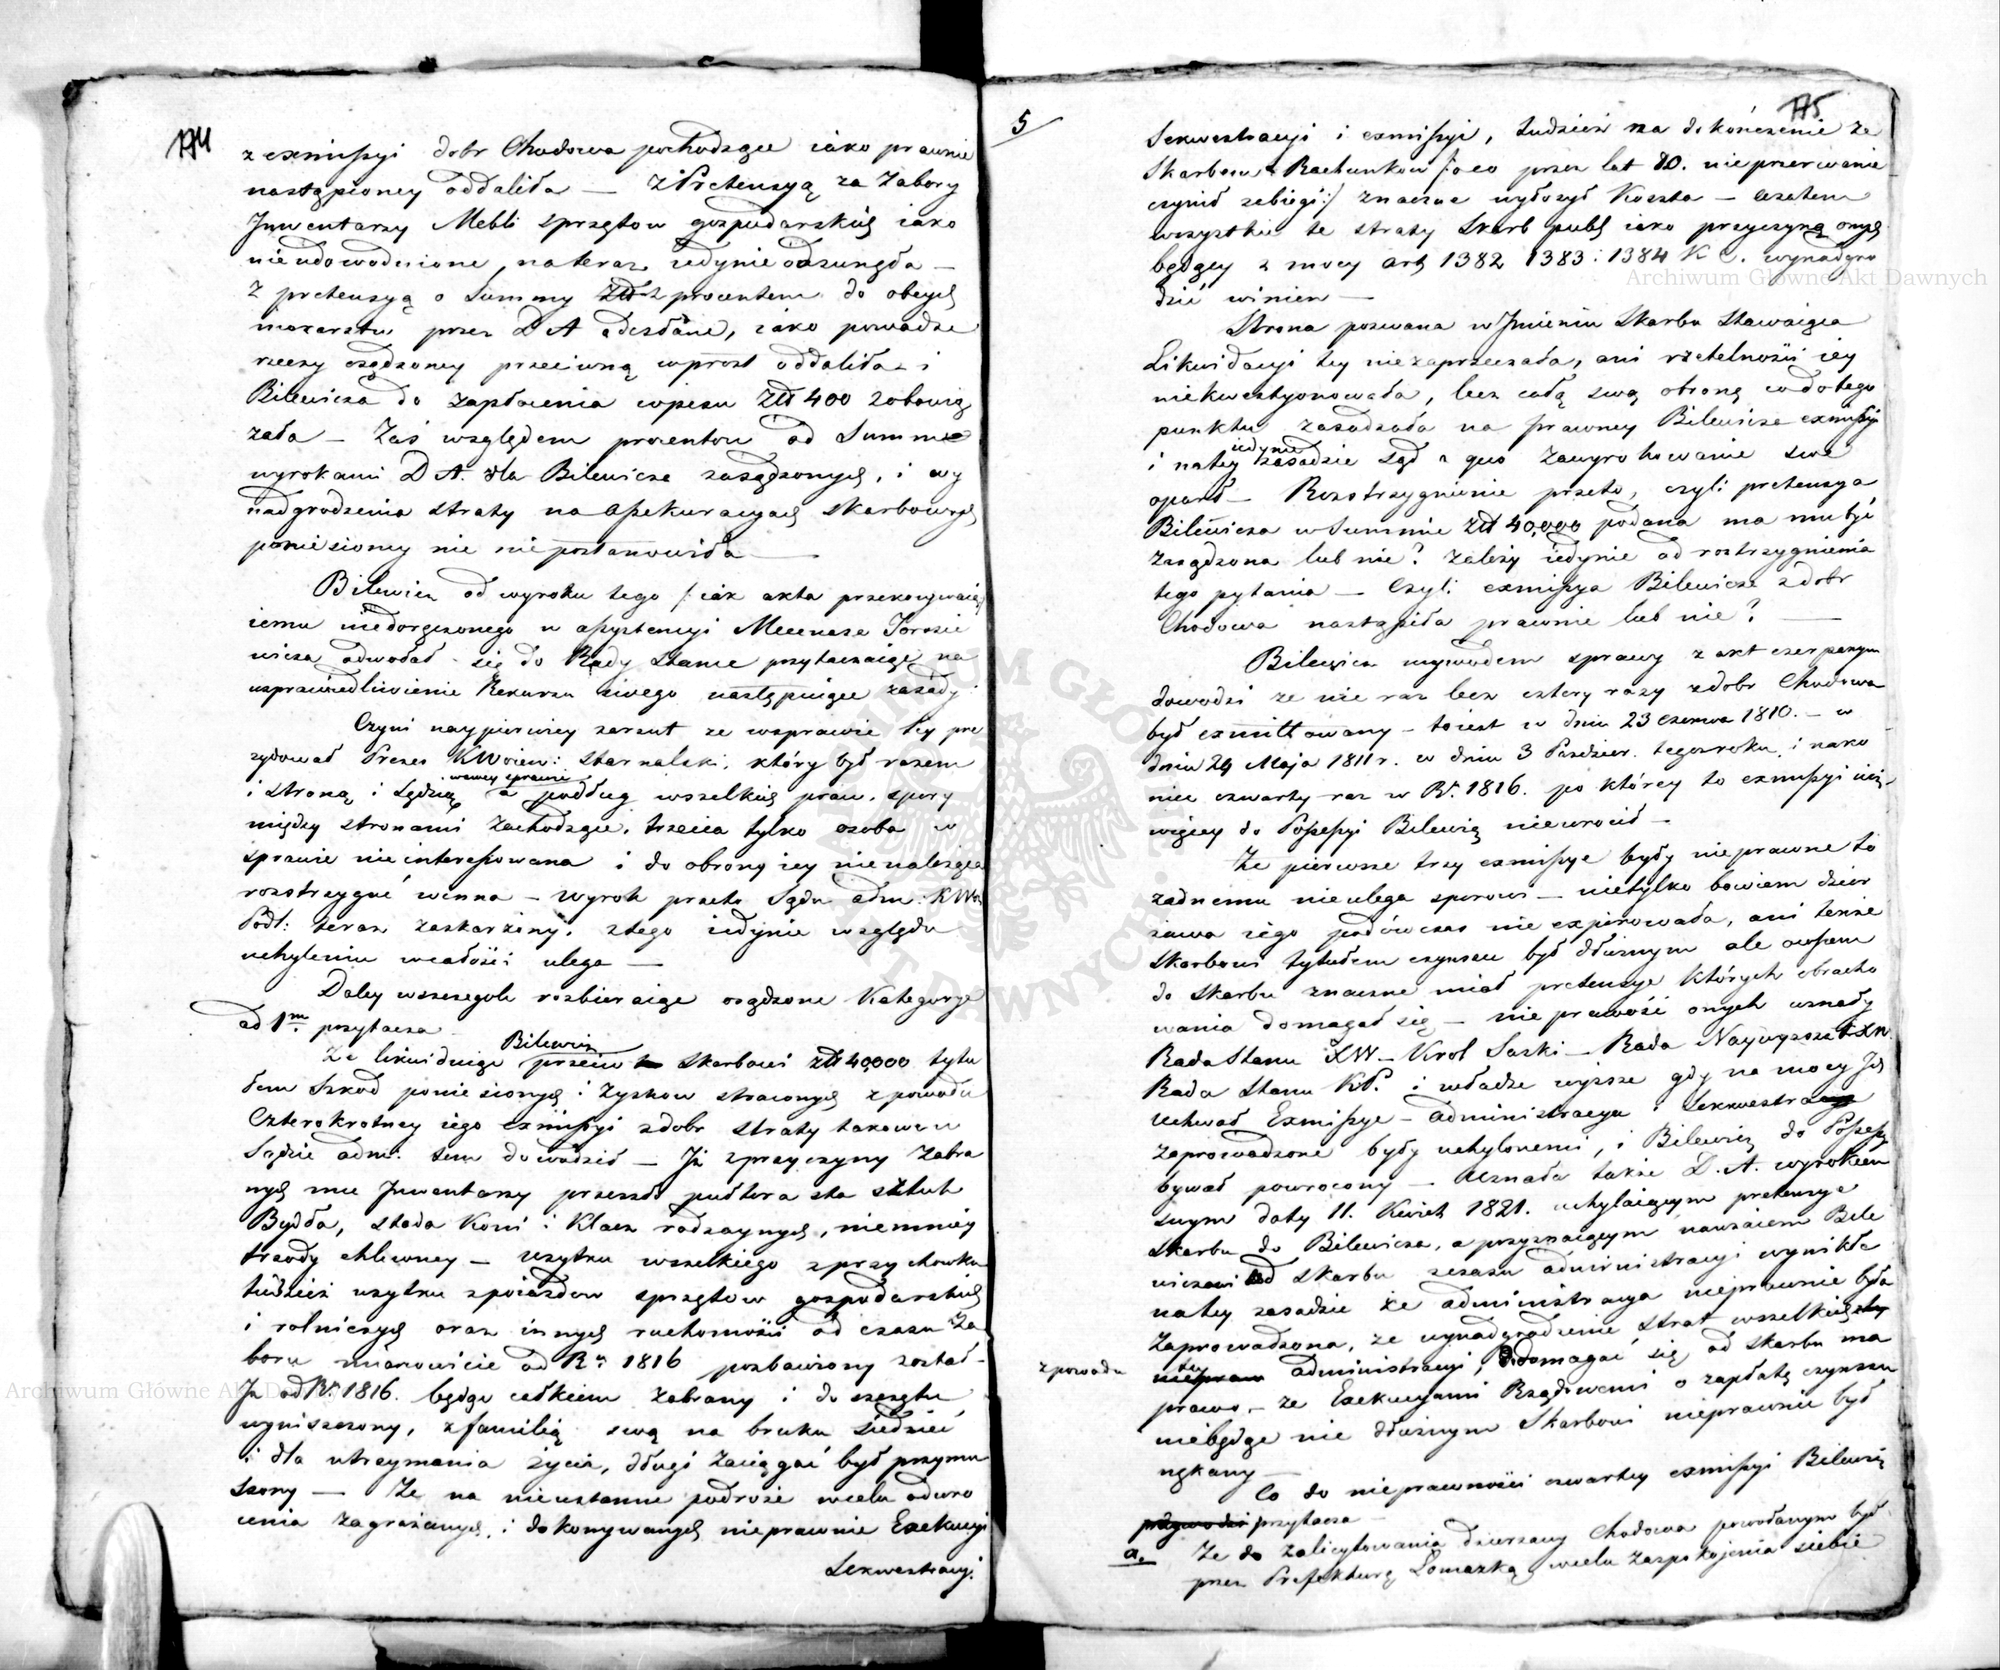 174
z exmissyi dobr Chodowa pochodzące iako prawnie
nastąpioney oddaliła — z Pretensyą za Zabory
Inwentarzy Mebli sprzętow gospodarskich iako
nieudowodnione, nateraz iedynie odsunęła —
z pretensyą o Summy procentem do obcych
przez D A odesłane, iako powadze
rzeczy osądzoney przeciwną wprost oddaliła i
Bilewicza do zapłacenia wpisu Złł 400 zobowią
zała — Zaś względem procentow od Summ
wyrokami D A. dla Bilewicza zasądzonych, i wy
nadgrodzenia straty na Assekuracyach skarbowych
poniesioney nic nie postanowiła —
Bilewicz od wyroku tego /: iak akta przekonywaią
iemu niedoręczonego w assystencyi Mecenasa Torosie
wicza odwołał się do Rady Stanu przytaczaiąc na
usprawiedliwienie Rekursu swego następuiące zasady:
Czyni naypierwiey zarzut ze wsprawie tey pre
zydował Prezes KWoiew: Starnalski, który był razem
wswey sprawie
i stroną i sędzią, a podług wszelkich praw, spory
między stronami zachodzące, trzecia tylko osoba w
sprawie nieinteressowana i do obrony iey nienależąca
rozstrzygnąć winna — wyrok przeto Sądu adm: KWa
Podl: teraz zaskarżony, ztego iedynie względu
uchyleniu wcałości ulega —
Daley wszczegole rozbieraiąc osądzone Kategorye
ad 1m przytacza —
Bilewicz
Ze likwiduiąc przeciw Skarbowi złł 40,000 tytu
łem Szkod poniesionych i Zyskow straconych z powodu
Czterokrotney iego exmissyi zdobr straty takowe w
Sądzie adm. tem dowodził — Iż zprzyczyny Zabra
nych mu Inwentarzy przeszło pułtora sta sztuk
Bydła, stada Koni i Klacz rodzaynych, niemniey
trzody chlewney — uzytku wszelkiego zprzychowku
tudzież uzytku zpoiazdow sprzętow gospodarskich
i rolniczych oraz innych ruchomości od czasu Za
boru mianowicie od Ru 1816 pozbawiony został —
Iż od R. 1816. będąc całkiem zabrany i do szczętu
wyniszczony, zfamilią swą na bruku siedzieć
i dla utrzymania życia, długi zaciągać był przymu
szony — Ze na nieustanne podroże wcelu odwro
cenia zagrażanych, i dokonywanych nieprawnie Exekucyi
Sekwestracyi
5
175
Sekwestracyi i exmissyi, tudzież na dokończenie ze
Skarbem Rachunkow /: o co przez lat 10. nieprzerwanie
czynił zabiegi :/ znaczne wyłożył Koszta — azatem
wszystkie te straty Skarb publ iako przyczyną onych
będący z mocy Art 1382 1383 i 1384 K C. wynadgro
dzić winien —
Strona pozwana w Imieniu Skarbu Stawaiąca
Likwidacyi tey niezaprzeczała, ani rzetelności iey
niekwestyonowała, lecz całą swą obronę wdotego
punktu zasadzała na prawney Bilewicza exmissyi
iedynie
i natey zasadzie Sąd a quo zawyrokowanie swe
oparł — Rozstrzygnienie przeto, czyli pretensya
Bilewicza w Summie Złł 40,000 podana ma mu być
zasądzona lub nie? zależy iedynie od rozstrzygnienia
tego pytania — Czyli exmissya Bilewicza zdobr
Chodowa nastąpiła prawnie lub nie? —
Bilewicz wywodem sprawy z akt czerpanym
dowodzi ze nie raz lecz cztery razy zdobr Chodowa
był exmittowany — toiest w dniu 23 Czerwca 1810. — w
dniu 24 Maja 1811 r. w dniu 3 Pazdzier. tegoż roku i nako
niec czwarty raz w R. 1816. po którey to exmissyi iuż
więcey do Possessyi Bilewicz niewrocił —
Ze pierwsze trzy exmissye były nieprawne to
żadnemu nieulega sporowi — nietylko bowiem dzier
żawa iego podówczas nie expirowała, ani tenże
Skarbowi tytułem czynszu był dłużnym ale owszem
do Skarbu znaczne miał pretensye których obracho
wania domagał się — nieprawość onych uznały
Rada Stanu XW — Krol Saski — Rada Naywyższa XW.
Rada Stanu KP. i władze wyższe gdy na mocy Ich
Uchwał Exmissye — administracya i Sekwestracye
zaprowadzone były uchylonemi, i Bilewicz do Possessyi
bywał powrocony — Uznała także D. A. wyrokiem
swym daty 11. Kwiet 1821. uchylaiącym pretensye
Skarbu do Bilewicza, a przyznaiącym nawzaiem Bile
wiczowi od Skarbu zczasu administracyi wynikłe
natey zasadzie że administracya nieprawnie była
Zaprowadzona, że wynadgrodzenie strat wszelkich
z powodu tey administracyi, domagać się od Skarbu ma
prawo — ze Exekucyami Rządowemi o zapłatę czynszu
niebędąc nic dłużnym Skarbowi nieprawnie był
nękany —
Co do nieprawności czwartey exmissyi Bilewicz
przytacza —
a. Ze do zalicytowania dzierzawy Chodowa powołanym był
przez Prefekturę Łomazką wcelu zaspokojenia siebie